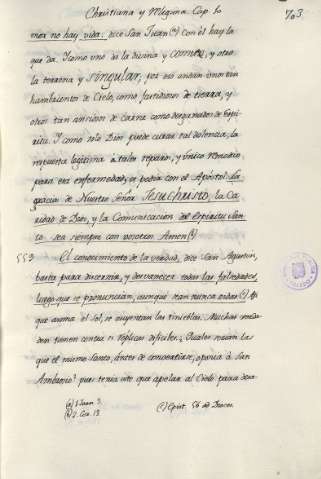 Christiana y Magina. Cap. 6
703.
mor no hay vida: dice San Juan (a) Con él hay la
que da. Y como uno de la divina y comun, y otro
la terrena y singular, por eso andan unos tan
hambrientos de Cielo, como fastidiosos de tierra, y
otros tan ansiosos de carne como desganados de Espi-
ritu. Y como solo Dios puede curar tal dolencia, la
respuesta legitima à tales reparos, y unico remedio
para esa enfermedad, es pedir con el Apostol: La
gracia de Nuestro Señor Jesuchristo, la Ca-
ridad de Dios, y la Comunicacion del Espiritu San-
to sea siempre con vosotros Amen (b)
553 El conocimiento de la verdad, dice San Agustin,
basta para discernir, y desvanecer todas las falsedades,
luego que se pronuncian, aunque sean nunca oidas (c) Asi
que asoma el Sol, se ahuyentan las tinieblas. Muchas verda-
des tienen contra si replicas dificiles; Quales serian las
que el mismo Santo, antes de convertirse, oponia à San
Ambrosio? pues tenia este que apelar al Cielo para
(a) 1 Joan 3.
(b) 2. Cor. 13
(c) Epist. 56 ad Diosco.